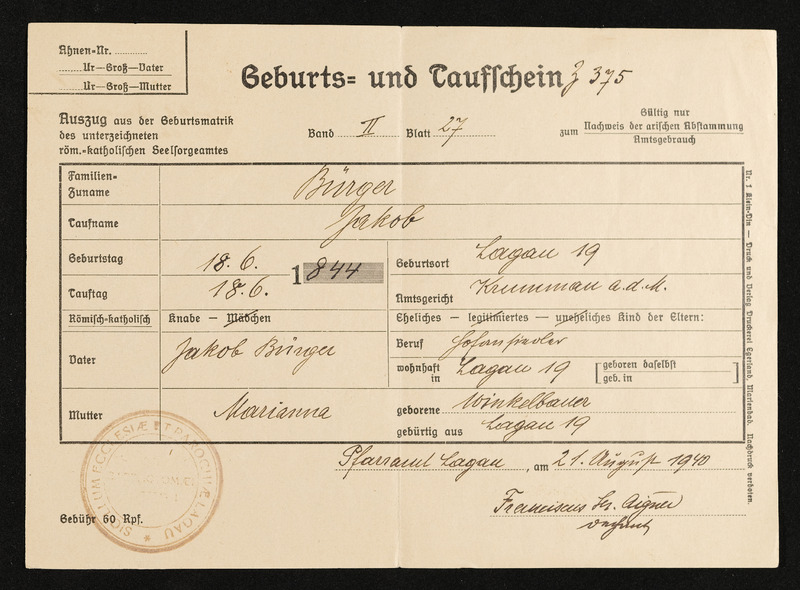 Ahnen-Nr. ............
.......Ur—Groß—Vater
.......Ur—Groß—Mutter
Geburts= und Taufschein Z 375
Auszug aus der Geburtsmatrik
des unterzeichneten
röm.-katholischen Seelsorgeamtes
Band II Blatt 27
Gültig nur
zum Nachweis der arischen Abstammung
Amtsgebrauch
Familien-
Zuname
Bürger
Taufname
Jakob
Geburtstag
18. 6.
1844
Geburtsort
Lagau 19
Tauftag
18. 6.
Amtsgericht
Krummau a.d.M.
Römisch-katholisch
Knabe — Mädchen
Eheliches — legitimiertes — uneheliches Kind der Eltern:
Vater
Jakob Bürger
Beruf
wohnhaft
in
Lagau 19
geboren daselbst
geb. in
Mutter
Marianna
geborene Winkelbauer
gebürtig aus Lagau 19
Pfarramt Lagau, am 21. August 1940
Franciscus Aigner
Dechant
SIGILLUM ECCLESIÆ ET PAROCHIÆ LAGAU
Gebühr 60 Rpf.
Nr. 1 Klein-Din — Druck und Verlag Druckerei Egerland, Marienbad. Nachdruck verboten.